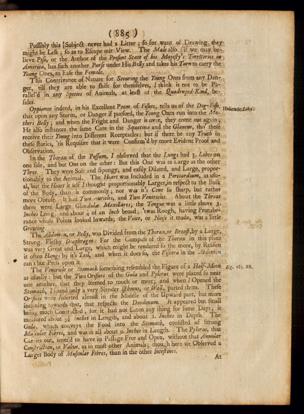 ( 885 )
Possibly this Subject never had a Litter ; so for want of Drawing, they
might be Less ; so as to Escape our View. The Male also (if we may be-
lieve Piso, or the Author of the Present State of his Majesty's Territories in
America, has such another Purse under his Belly and takes his Turn to carry the
Young Ones, to Ease the Female.
This Contrivance of Nature for Securing the Young Ones from any Dan-
ger, till they are able to shift for themselves, I think is not to be Pa-
rallel'd in any Species of Animals, at least of the Quadruped Kind, be-
sides.
Oppianus indeed, in his Excellent Poem of Fishes, tells us of the Dog-Fish,
that upon any Storm, or Danger if pursued, the Young Ones run into the Mo-
thers Belly ; and when the Fright and Danger is over, they come out again ;
He also instances the same Care in the Squatina and the Glaucus, tho' these
receive their Young into Different Receptacles: but if there be any Truth in
these stories, 'tis Requisite that it were Confirm'd by more Evident Proof and
Observation.
In the Thorax of the Possum, I observed that the Lungs had 3 Lobes on
one side, and but One on the other : But this One was as Large as the other
Three. They were Soft and Spongy, and easily Dilated, and Large, propor-
tionably to the Animal. The Heart was Included in a Pericardium, as usu-
al, but the Heart it self I thought proportionably Larger, in respect to the Bulk
of the Body, than is commonly ; nor was it's Cone so sharp, but rather
more Obtuse. It had Two Auricles, and Two Ventricles. About the Throat
there were Large Glandulæ Maxillares ; the Tongue was a little above 3
Inches Long, and about 4 of an Inch broad ; 'twas Rough, having Protube-
rance whose Points looked Inwards
Greasing
The Abdomen, or Belly, was Divided from the Thorax, or Breast, by a Large,
Strong, Fleshy Diaphragm:
was very Great and Large, which might be rendered so the more, by Reason
it often Hangs by it's Tail, and when it does so, the Viscera in the Abdomen
must Press upon it.
The Ventricle or Stomach something resembled the Figure of a Half-Moon
but the Two Orifices of the Gula and Pylorus were placed so near
one another, that they seemed to touch or meet ; and when I Opened the
Stomach, I found only a very slender Ribbon, or Ridge, parted them. These
Orifices were inserted almost in the Middle of the Upward part, but more
leaning towards that, that respects the Duodenum. It appeared but small
being much Contracted, for it had not Eaten any thing for some Days ; it
measured about 3½ Inches in Length, and about 2 Inches in Depth. The
Gula, which conveys the Food into the Stomach, consisted of strong
Muscular Fibres, and was in all about 9 Inches in Length. The Pylorus, that
Carries out, seem'd to have as Passage Free and Open, without that Annular
Constriction, or Valve, as in most other Animals ; tho', I here we Observed a
Larger Body of Muscular Fibres, than in the other Intestines.
At
Fig. 17, 22.